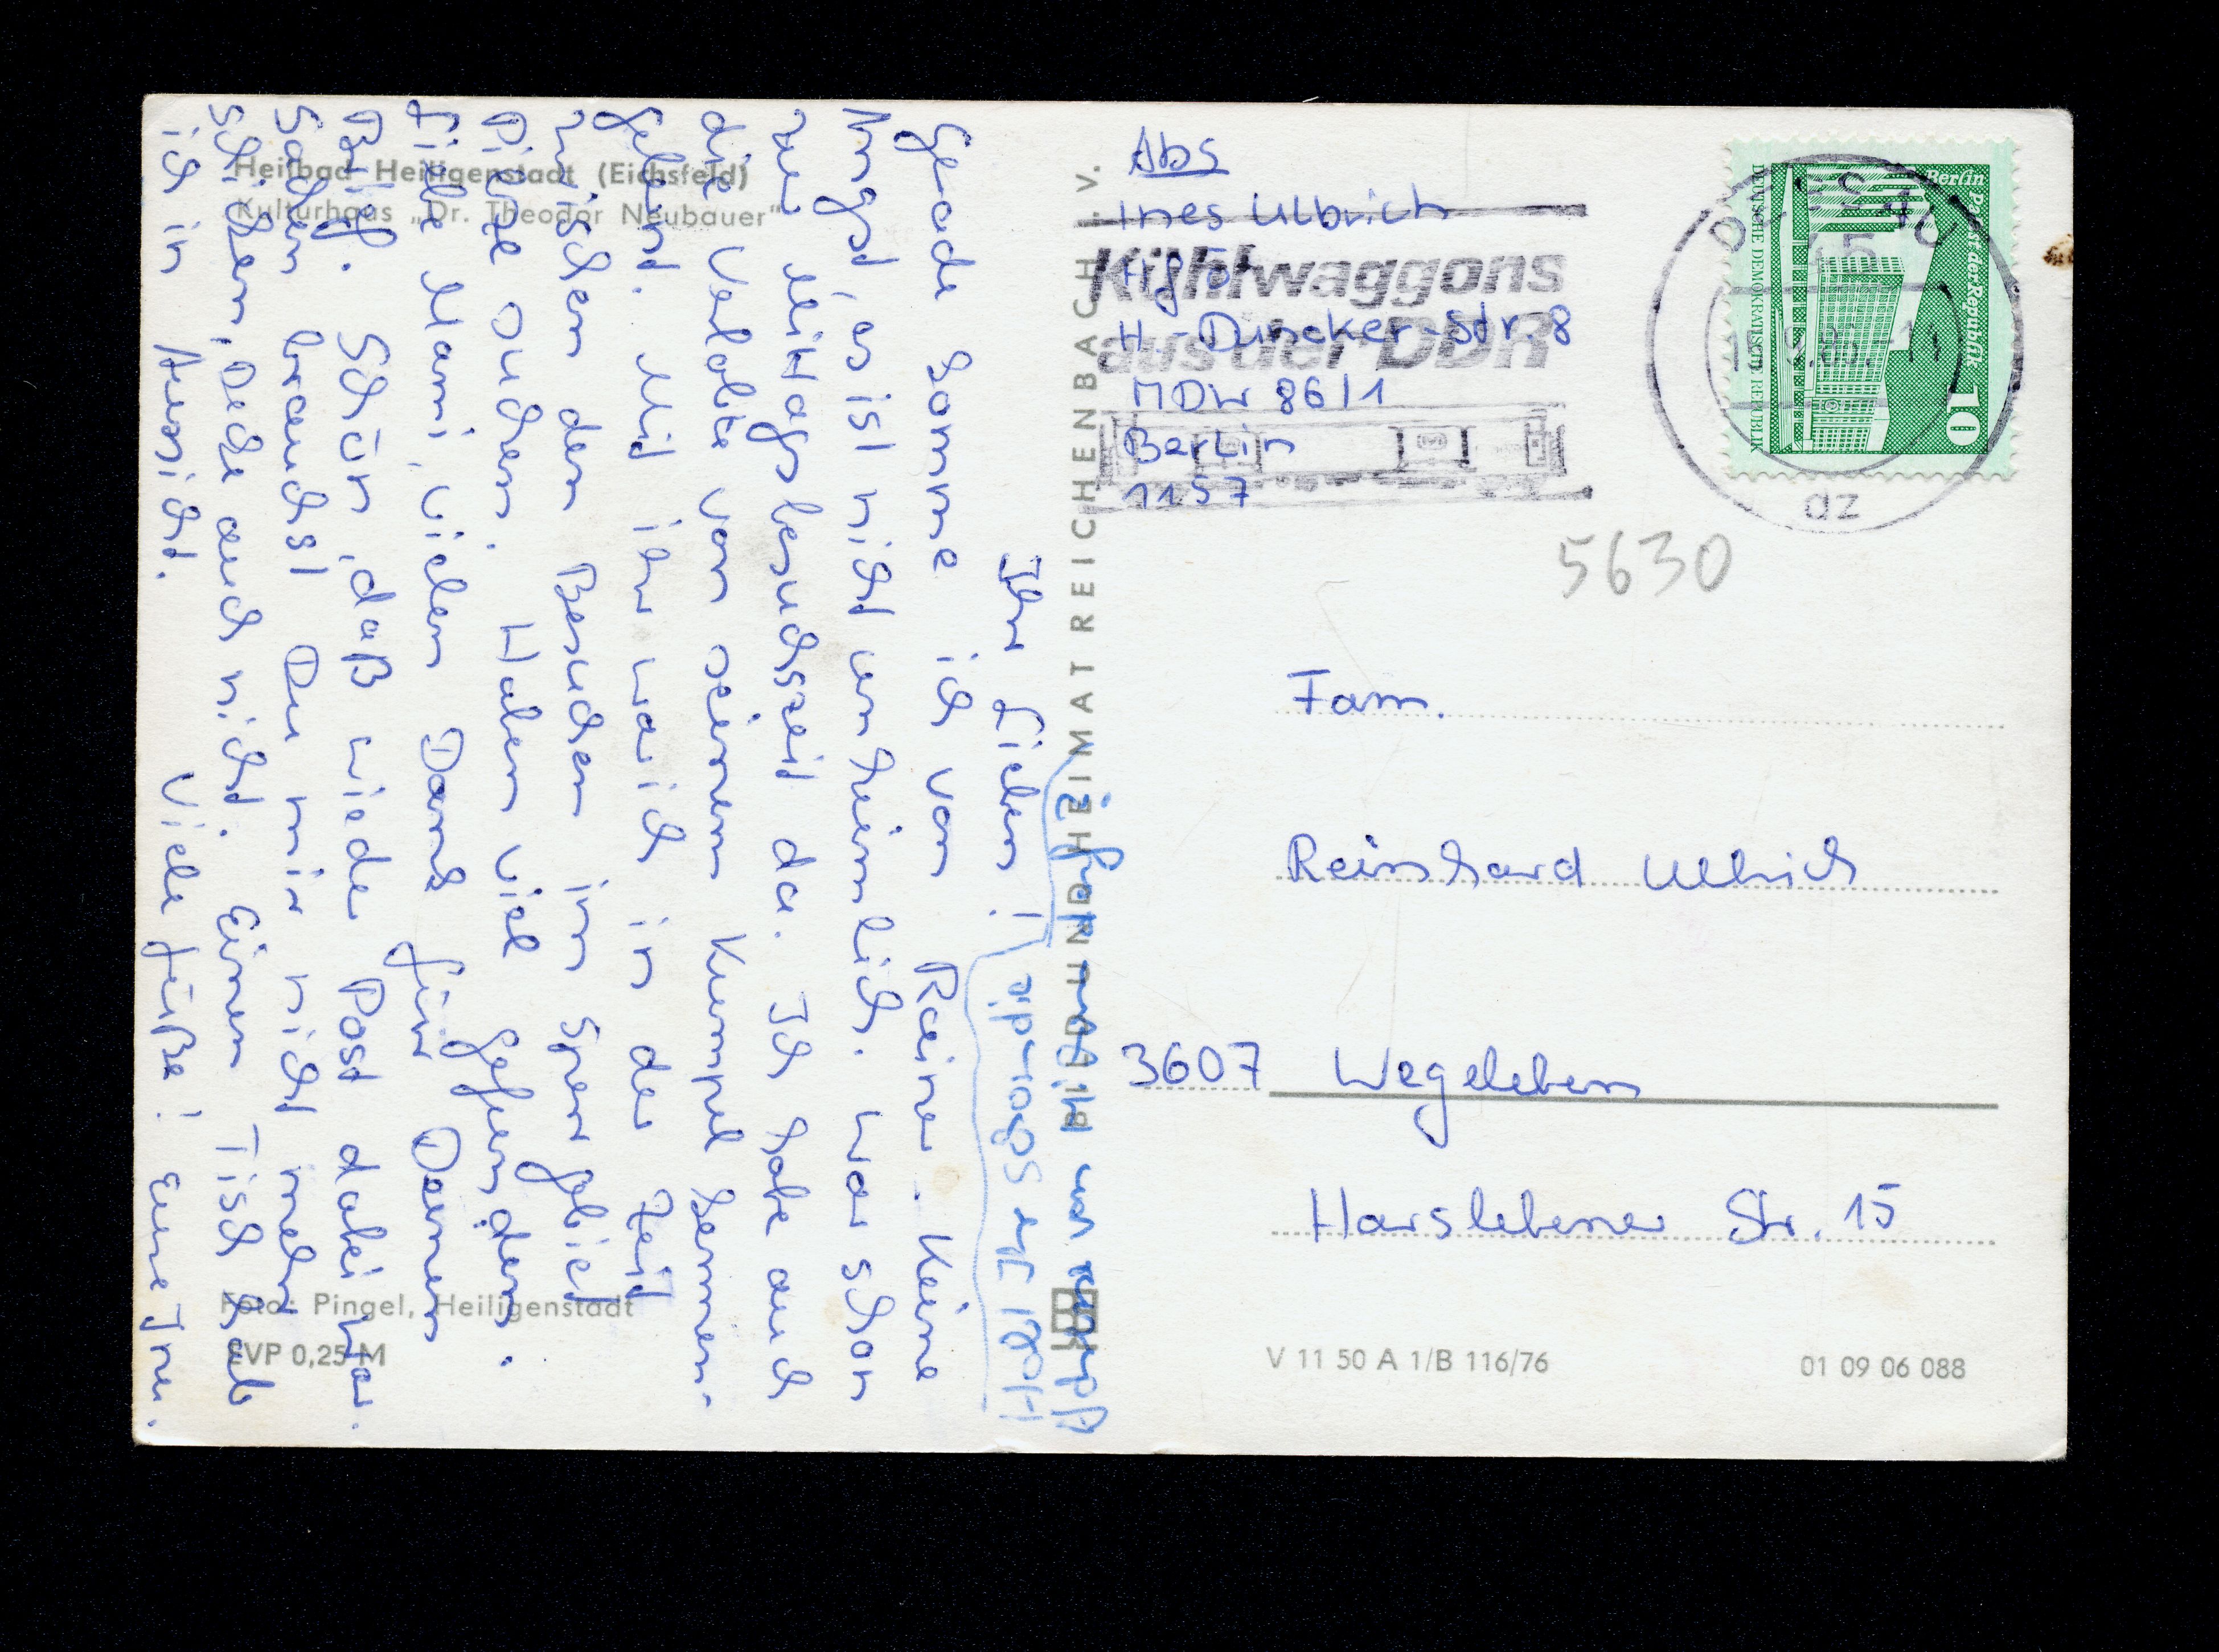 Heilbad Heiligenstadt (Eichsfeld)
Kulturhaus „Dr. Theodor Neubauer"
Ihr Lieben!
Gerade komme ich von Rainer. Keine
Angst, es ist nicht unheimlich. War schon
zur Mittagsbesuchszeit da. Ich habe auch
die Verlobte von seinem Kumpel kennen-
gelernt. Mit ihr war ich in der Zeit
zwischen den Besuchen im Spergebiet
Pilze suchen. Haben viel gefunden.
Liebe Mami, vielen Dank für Deinen
Brief. Schön, daß wieder Post dabei war.
Sachen brauchst Du mir nicht mehr
schicken, Decke auch nicht. Einen Tisch hab
ich in Aussicht. Viele Grüße! Eure Ines.
Foto: Pingel, Heiligenstadt
EVP 0,25 M
BILD UND HEIMAT REICHENBACH i. V.
Abs
Ines Ulbrich
HfÖ
H.-Duncker-Str. 8
MDW 86/1
Berlin
1157
Kühlwaggons
aus der DDR
DESSAU
45
az
Berlin
Palast der Republik
10
DEUTSCHE DEMOKRATISCHE REPUBLIK
5630
Fam.
Reinhard Ulbrich
3607 Wegeleben
Harslebener Str. 15
V 11 50 A 1/B 116/76
01 09 06 088